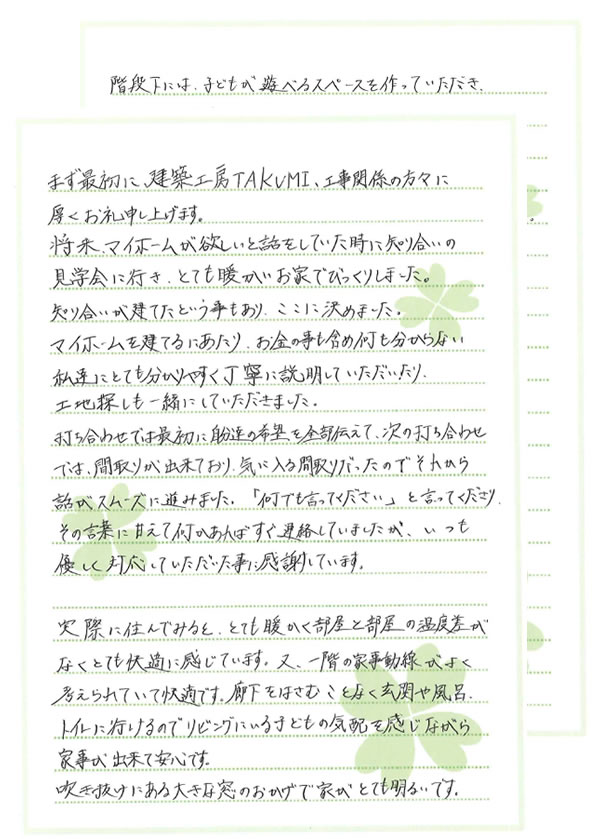 階段下には、子どもが遊べるスペースを作っていただき、
まず最初に、建築工房TAKUMI、工事関係の方々に
厚くお礼申し上げます。
将来、マイホームが欲しいと話をしていた時に知り合いの
見学会に行き、とても暖かいお家でびっくりしました。
知り合いが建てたという事もあり、ここに決めました。
マイホームを建てるにあたり、お金の事も含め何も分からない
私達にとても分かりやすく丁寧に説明していただいたり、
土地探しも一緒にしていただきました。
打ち合わせでは最初に私達の希望を全部伝えて、次の打ち合わせ
では、間取りが出来ており、気に入る間取りだったのでそれから
話がスムーズに進みました。「何でも言ってください」と言ってくださり、
その言葉に甘えて何かあればすぐ連絡していましたが、いつも
優しく対応していただいた事に感謝しています。
実際に住んでみると、とても暖かく部屋と部屋の温度差が
なくとても快適に感じています。又、一階の家事動線がよく
考えられていて快適です。廊下をはさむことなく玄関や風呂、
トイレに行けるのでリビングにいる子どもの気配を感じながら
家事が出来て安心です。
吹き抜けにある大きな窓のおかげで家がとても明るいです。